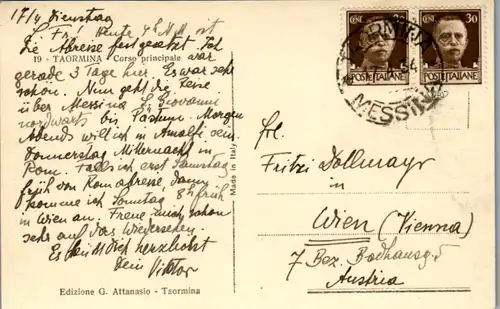 17/4 Dienstag
L. Fr! Heute ist
die Abreise festgesetzt. Ich
19 - TAORMINA - Corso principale
war
gerade 3 Tage hier. Es war sehr
schön. Nun geht die Reise
über Messina S. Giovanni
nordwärts bis Pästum. Morgen
Abends will ich in Amalfi sein
Donnerstag Mitternacht in
Rom. Falls ich erst Samstag
früh von Rom abreise, dann
komme ich Sonntag 8h früh
in Wien an. Freue mich schon
sehr auf das Wiedersehen.
Es küsst Dich herzlichst
Dein Viktor
Edizione G. Attanasio - Taormina
Made in Italy
CENT. 30
POSTE ITALIANE
CENT. 30
POSTE ITALIANE
TAORMINA
MESSINA
Frl.
Fritzi Dollmayr
in
Wien (Vienna)
7 Bez.
Austria